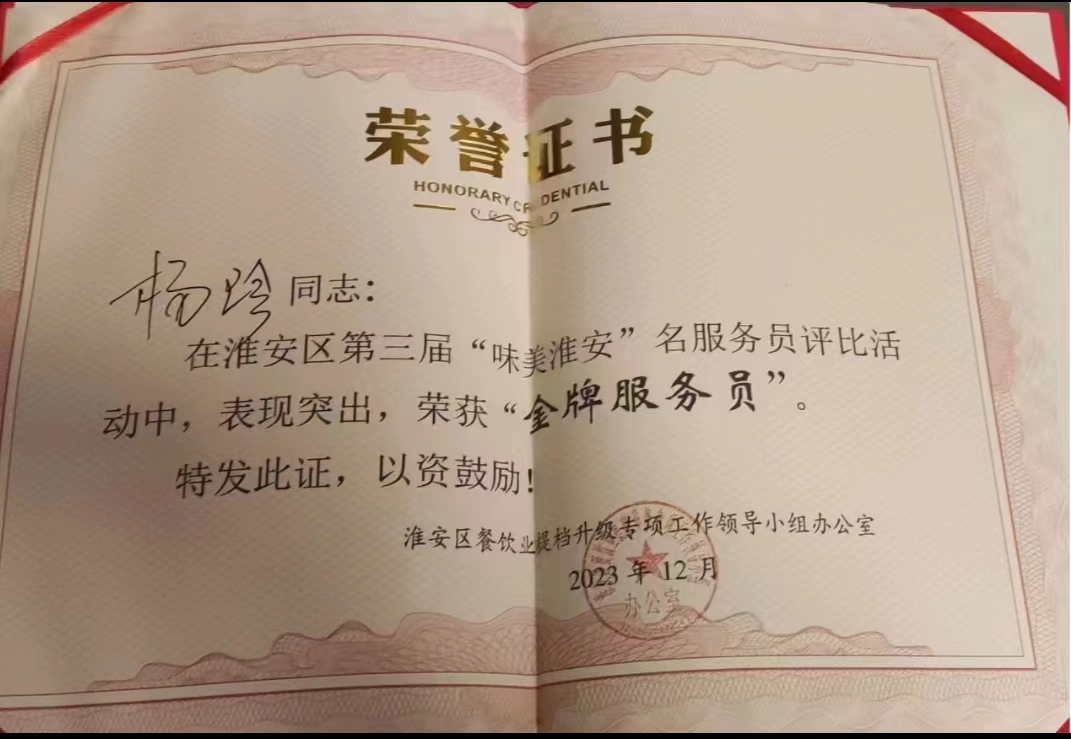 荣誉证书
HONORARY CREDENTIAL
杨玲同志：
在淮安区第三届“味美淮安”名服务员评比活
动中，表现突出，荣获“金牌服务员”。
特发此证，以资鼓励！
淮安区餐饮业提档升级专项工作领导小组办公室
2023年12月
办公室